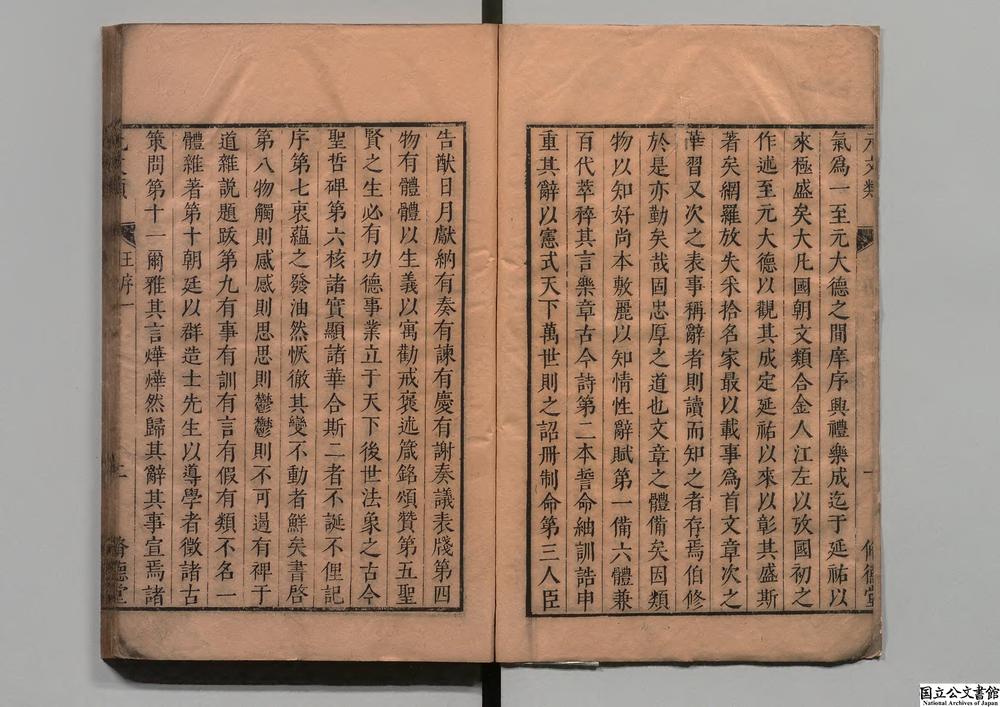 元文類
一
脩德堂
氣爲一至元大德之間庠序興禮樂成迄于延祐以
來極盛矣大凡國朝文類合金人江左以攷國初之
作述至元大德以觀其成定延祐以來以彰其盛斯
著矣網羅放失采拾名家最以載事爲首文章次之
華習又次之表事稱辭者則讀而知之者存焉伯修
於是亦勤矣哉固忠厚之道也文章之體備矣因類
物以知好尚本敷麗以知情性辭賦第一備六體兼
百代萃稡其言樂章古今詩第二本誓命紬訓誥申
重其辭以憲式天下萬世則之詔冊制命第三人臣
告猷日月獻納有奏有諫有慶有謝奏議表牋第四
物有體體以生義義以寓勸戒褒述箴銘頌贊第五聖
賢之生必有功德事業立于天下後世法象之古今
聖哲碑第六核諸實顯諸華合斯二者不誕不俚記
序第七衷蘊之發油然恢徹其變不動者鮮矣書啓
第八物觸則感感則思思則鬱鬱則不可遏有裨于
道雜說題跋第九有事有訓有言有假有類不名一
體雜著第十朝廷以群造士先生以導學者徵諸古
策問第十一爾雅其言燁燁然歸其辭其事宣焉諸
元文類
王序一
二
脩德堂
国立公文書館
National Archives of Japan